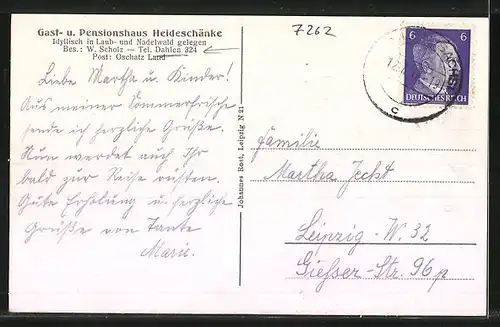 Gast- u. Pensionshaus Heideschänke
Idyllisch in Laub- und Nadelwald gelegen
Bes.: W. Scholz — Tel. Dahlen 324
Post: Oschatz Land
7262
Liebe Martha u. Kinder!
Aus meiner Sommerfrische
sende ich herzliche Grüße.
Nun werdet auch Ihr
bald zur Reise rüsten.
Gute Erholung u. herzliche
Grüße von Tante
Marie.
Johannes Rost, Leipzig N 21
6 6
DEUTSCHES REICH
c
Familie
Martha Jecht
Leipzig - W. 32
Gießer-Str. 96p